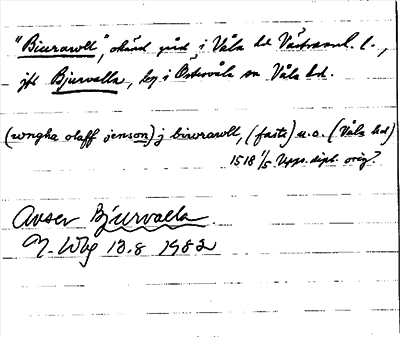 "Biurawll", okänd gård i Våla hd Västmanl. l.,
jfr Bjurvalla, by i Östervåla sn Våla hd.
(wngha olaff jenson) j biwrawll, (faste) u.o. (Våla hd)
1518 1/5 Upps. dipl. orig?
Avser Bjurvalla
13.8 1982